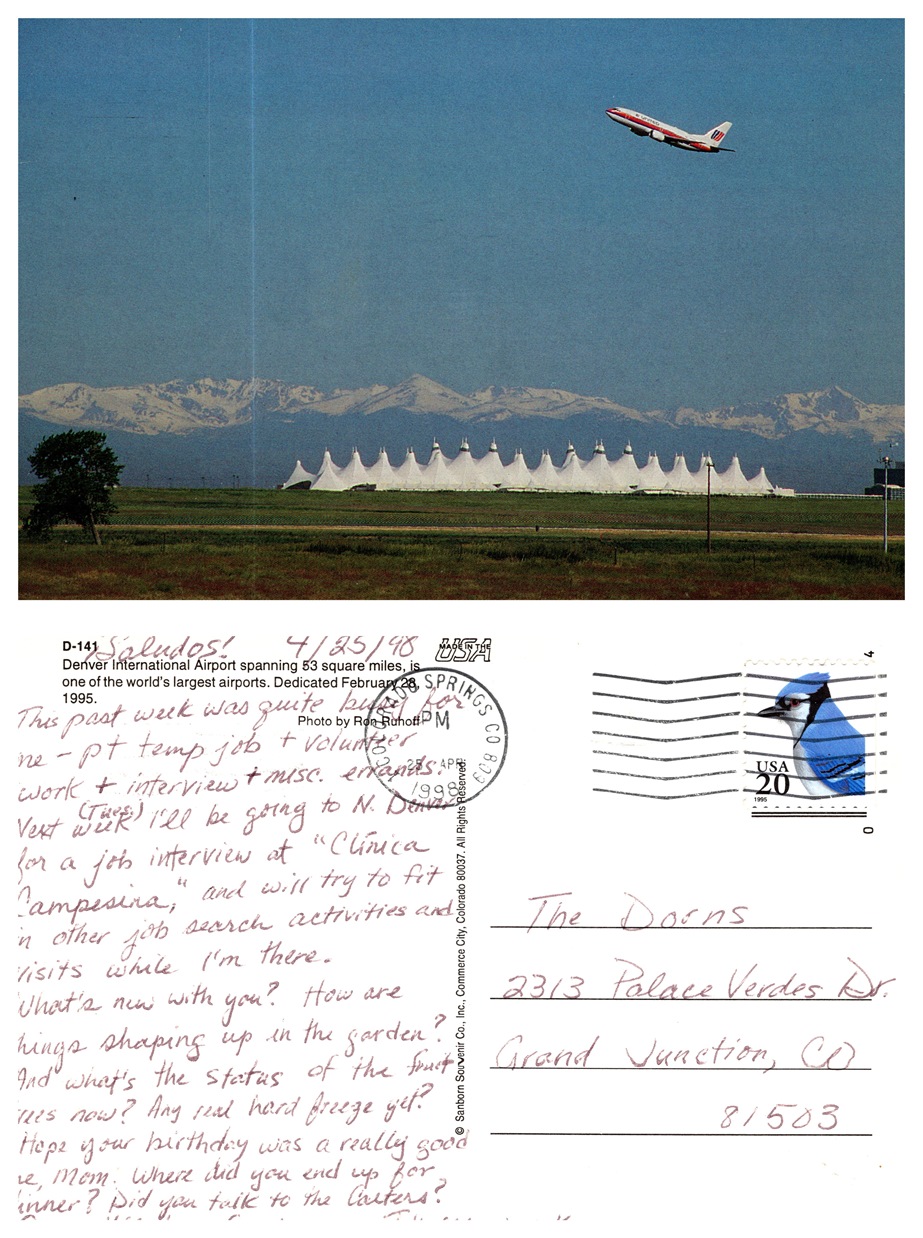 D-141
¡Saludos! 4/25/98
MADE IN THE
USA
Denver International Airport spanning 53 square miles, is
one of the world's largest airports. Dedicated February 28,
1995.
Photo by Ron Ruhoff
This past week was quite busy for
me - pt temp job + volunteer
work + interview + misc. errands.
Next week (Tues.) I'll be going to N. Denver
for a job interview at "Clínica
Campesina," and will try to fit
in other job search activities and
visits while I'm there.
What's new with you? How are
things shaping up in the garden?
And what's the status of the fruit
trees now? Any real hard freeze yet?
Hope your birthday was a really good
Mom. Where did you end up for
dinner? Did you talk to the Carters?
COLORADO SPRINGS CO 809
PM
25 APR
1998
© Sanborn Souvenir Co., Inc., Commerce City, Colorado 80037. All Rights Reserved.
USA
20
1995
4
0
The Dorns
2313 Palace Verdes Dr.
Grand Junction, CO
81503